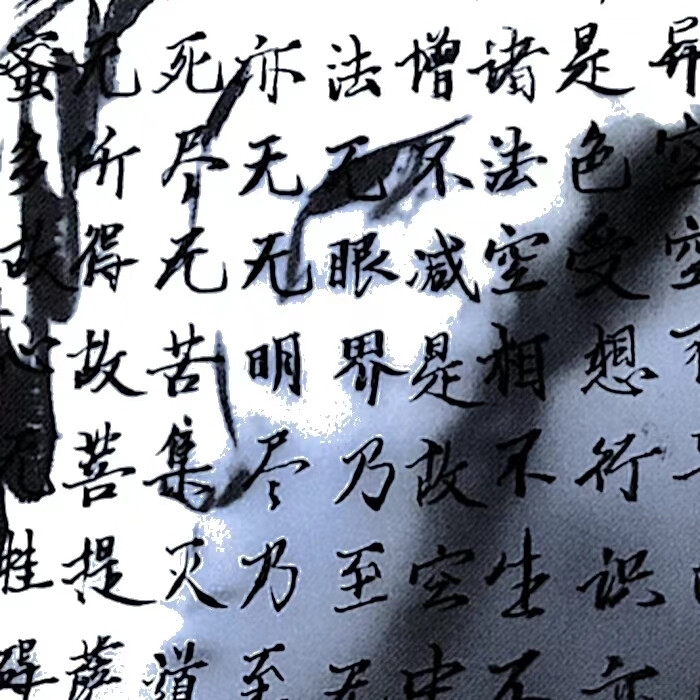 异空空不
是色受想行识亦
诸法空相不生不
增不减是故空中
法无眼界乃至无
亦无无明尽乃至
死尽无苦集灭道
无所得故菩提萨
蜜多故心无挂碍